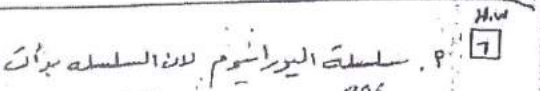 H.W
٦ م. سلسلة اليورانيوم لان السلسله بدأت